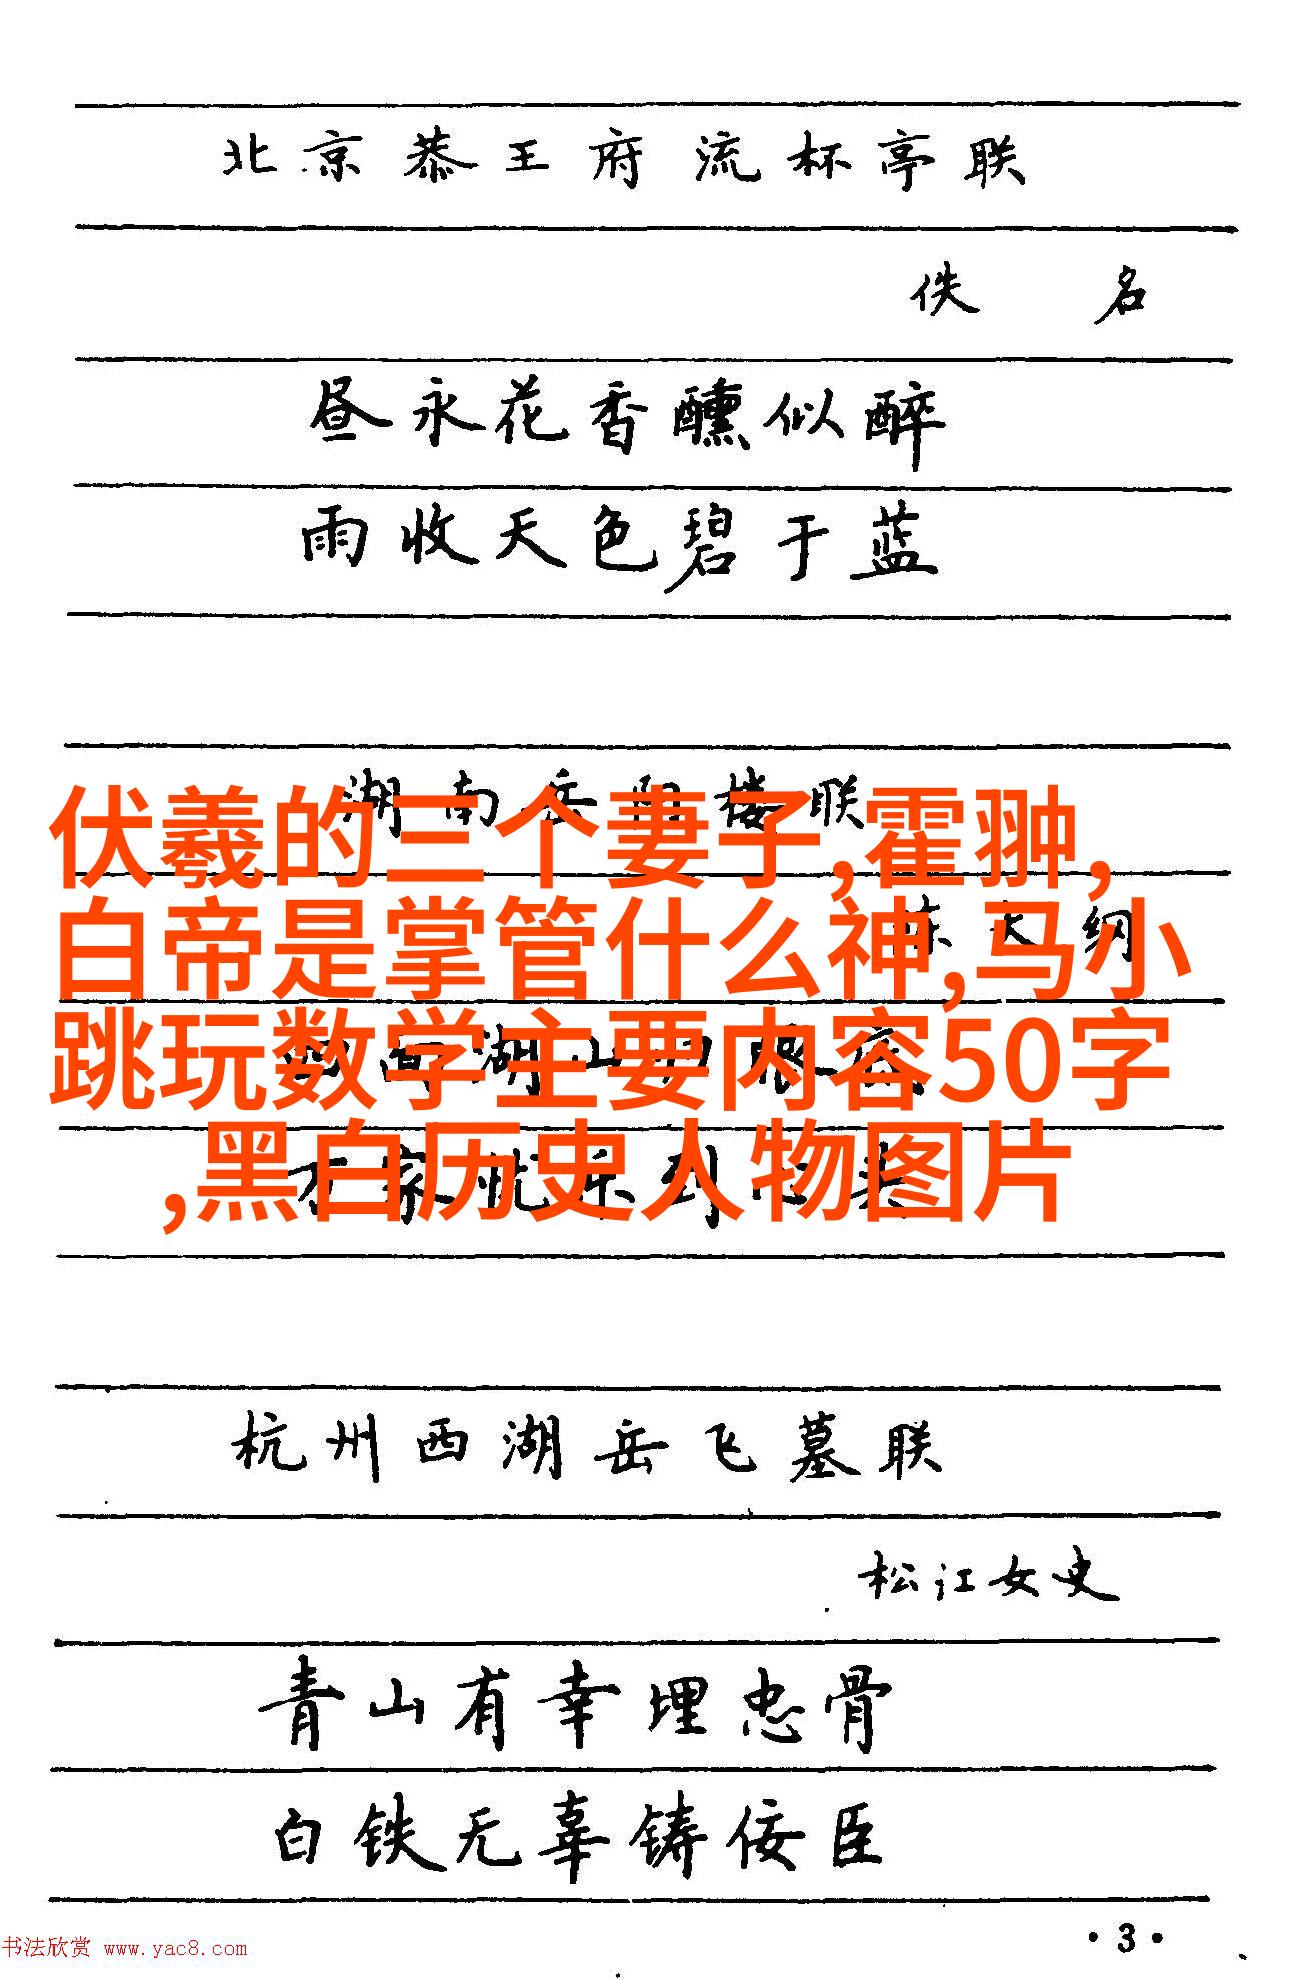 北京恭王府流杯亭联
佚名
昼永花香醺似醉
雨收天色碧于蓝
湖南岳阳楼联
伏羲的三个妻子,霍翀,
白帝是掌管什么神,马小
跳玩数学主要内容50字
,黑白历史人物图片
杭州西湖岳飞墓联
松江女史
青山有幸埋忠骨
白铁无辜铸佞臣
·3·
书法欣赏 www.yac8.com